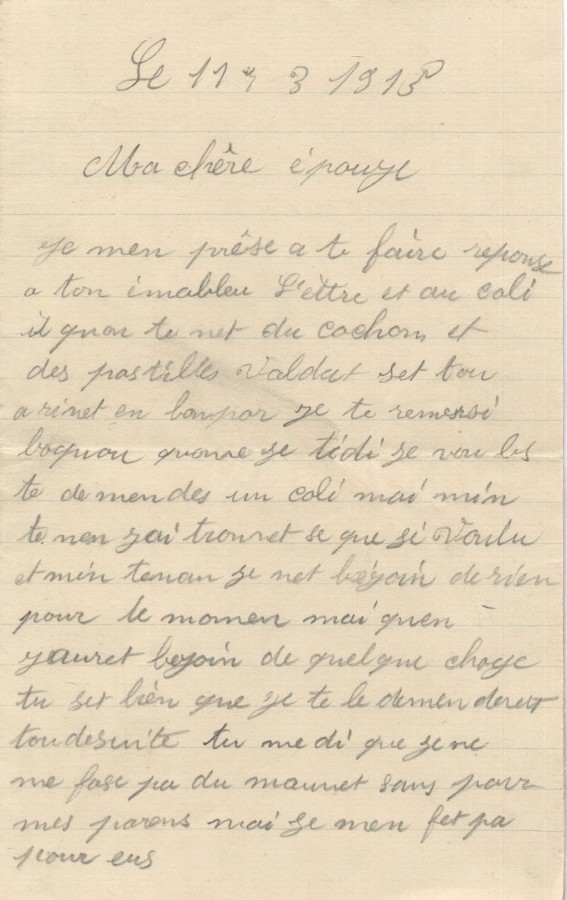 Le 11 3 191
Ma chêre épouze
Je men prêse a te faire reponse
a ton émableu L'èttre et au coli
il quon te net du cochon et
des pastilles Valdat set tou
arivet en bonpor je te remersi
boquou quome je tédi je vou les
te demendes un coli mai min
te nen jai trouvet se que je Voulu
et min tenan je net bezoin derien
pour le momen mai quen
jauret bezoin de quelque choze
tu set bien que je te le demenderet
toudesuite tu me di que jene
me fase pa du mauvet sans pour
mes parens mai je men fet pa
pour eus